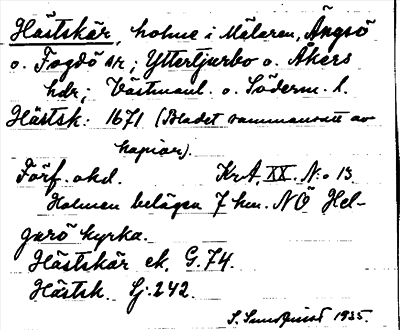 Hästskär, holme i Mälaren, Ängsö
o. Fogdö snr; Yttertjurbo o. Åkers
hdr; Västmanl. o. Söderm. l.
Hästsk: 1671 (Bladet sammansatt av
kopior).
Förf. okd. KrA, XX. N:o 13
Holmen belägen 7 km. NÖ Hel-
garö kyrka.
Hästskär ek. G. 74.
Hästsk. Lj. 242.
1935.